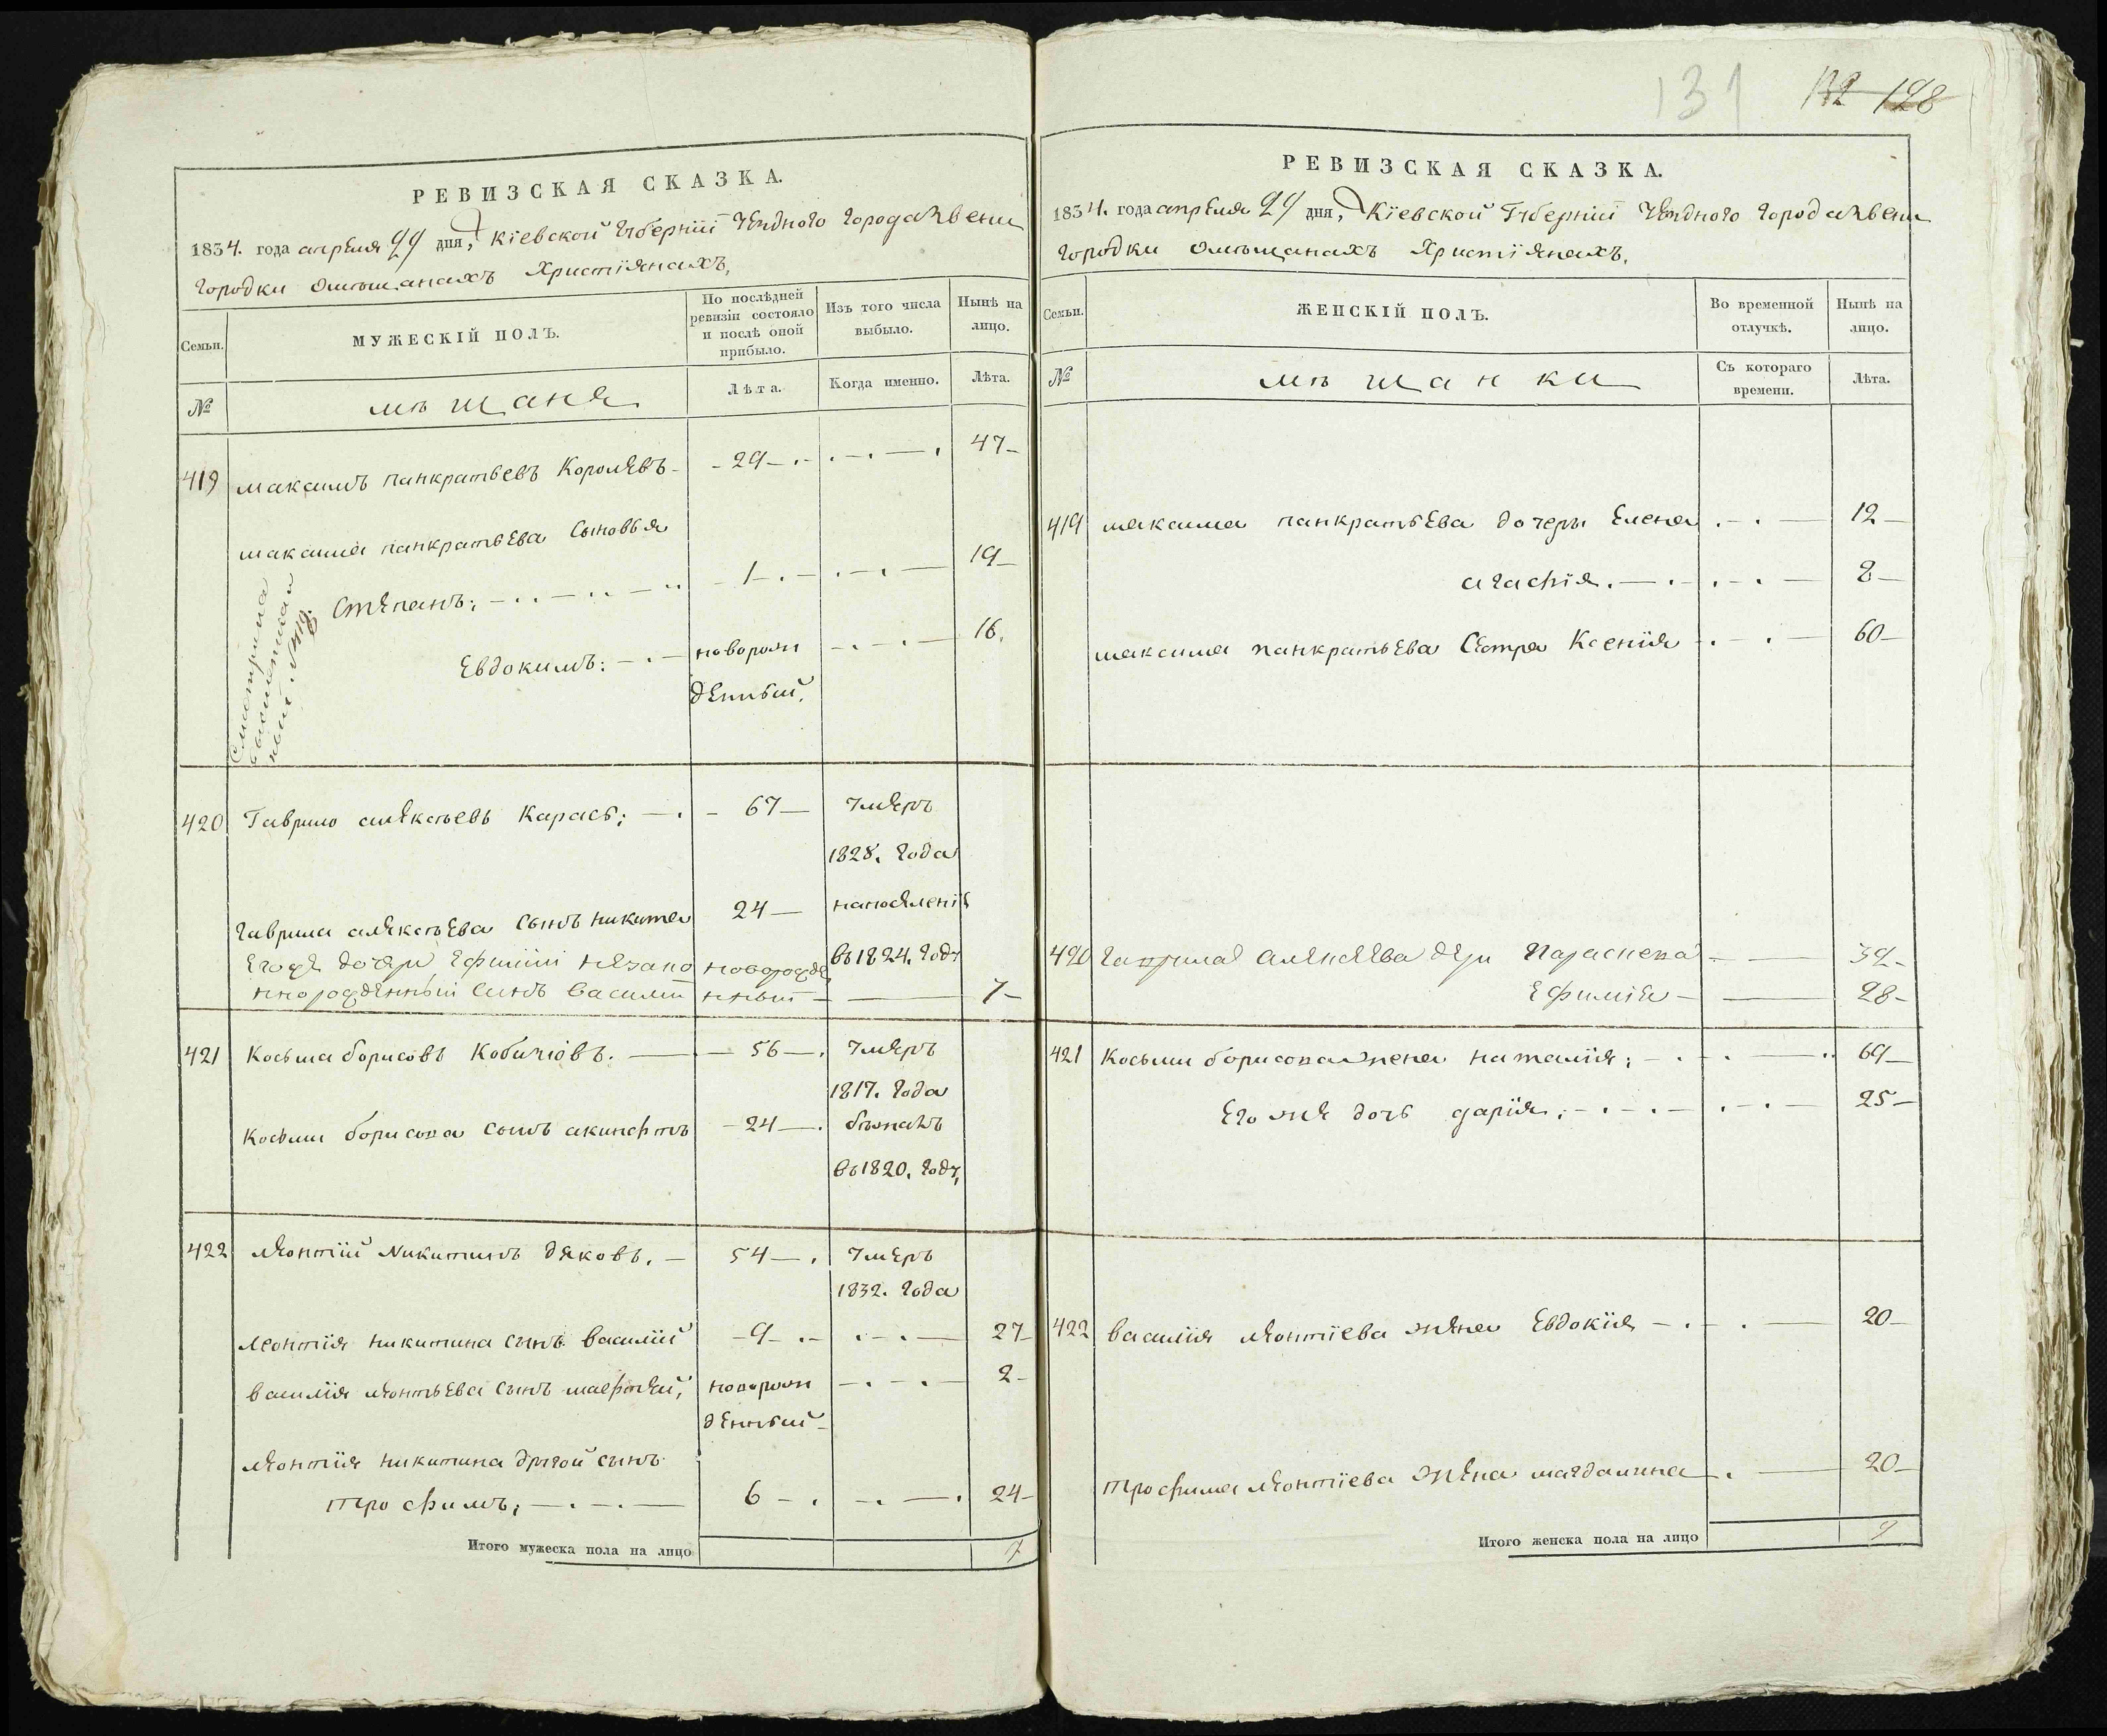 131 132 128
РЕВИЗСКАЯ СКАЗКА.
1834. года апреля 29 дня, Кіевской Губерніи уездного города Звени
Городки омѣщанахъ Христіянахъ,
Семьи. МУЖЕСКІЙ ПОЛЪ. По послѣдней ревизіи состояло и послѣ оной прибыло. Изъ того числа выбыло. Нынѣ на лицо.
№ мѣщаня Лѣта. Когда именно. Лѣта.
419 максимъ панкратьевъ Королевъ 29 47
максима панкратьева Сыновья
Степанъ; 1 19
Евдокимъ: новорож 16.
денный.
420 Гаврило алексѣевъ Карась; 67 умеръ
1828. года
гаврила алексѣева сынъ никита 24 напоселеніе
въ 1824. году
Егоже дочери Ефиміи незако новорожде
ннорожденный синъ василій нный 7
421 Косьма борисовъ 56 умеръ
1817. года
Косьми борисова сынъ акинфтъ 24 бѣжалъ
въ 1820. году,
422 леонтій Никитинъ дяковъ. 54 умеръ
1832. года
леонтія никитина сынъ василій 9 27
василія леонтьева сынъ матфтей, новорож 2
денный
леонтія никитина другой сынъ
трофимъ; 6 24
Итого мужеска пола на лицо 7
РЕВИЗСКАЯ СКАЗКА.
1834. года апреля 29 дня, Кіевской Губерніи уездного города Звени
Городки омѣщанахъ Христіянахъ.
Семьи. ЖЕНСКІЙ ПОЛЪ. Во временной отлучкѣ. Нынѣ на лицо.
№ мѣщанки Съ котораго времени. Лѣта.
419 максима панкратьева дочеры Елена 12
агафія. 8
максима панкратьева Сестра Ксенія 60
420 гаврила алексеева Параскева 32
Ефимія 28
421 Косьми борисова жена наталія; 69
Его же дочь дарія; 25
422 василія леонтіева жена Евдокія 20
трофима леонтіева жена магдалина 20
Итого женска пола на лицо 9